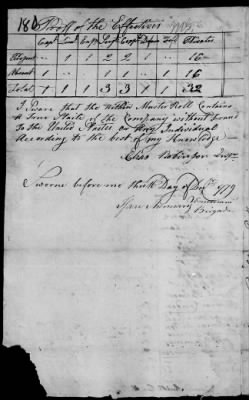 Proof of the Effectives
Capt Lieut Ensn Serjt Corpl Drum Fifr Privates
Present - 1 1 2 2 1 - 16
Absent 1 - - 1 1 - 1 16
Total 1 1 1 3 3 1 1 32
I Swear that the Within Muster Roll Contains
A True State of the Company without Fraud
To the United States or Any Individual
According to the best of my Knowledge
Elias Robinson Capt
Sworne before me this Day of Decr 1779
Isaac Sherman
Brigade